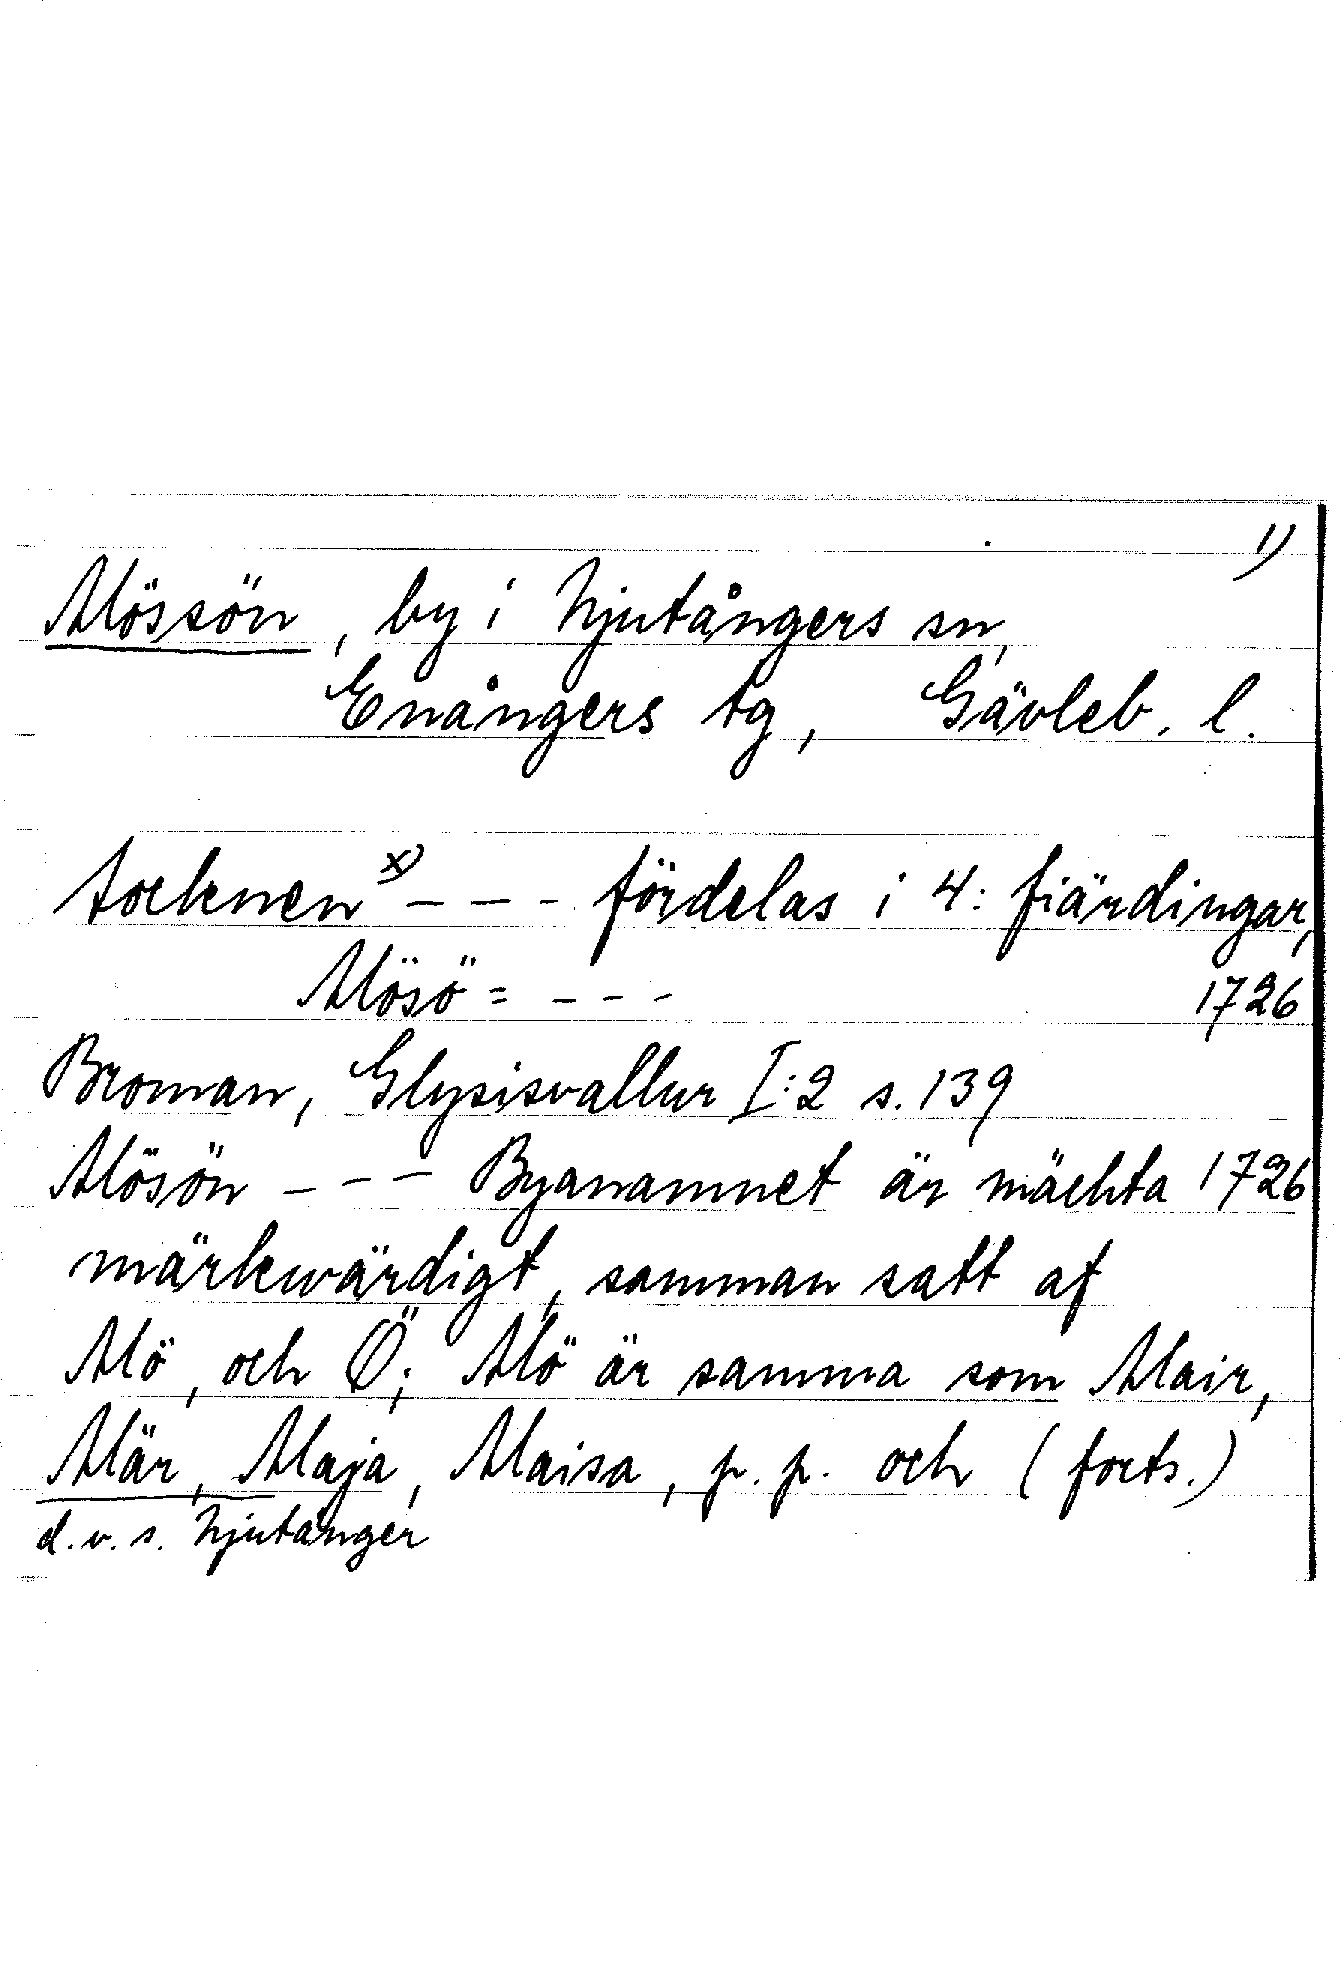 1)
Mössön, by i Njutångers sn,
Enångers tg, Gävleb. l.
Socknen x) --- fördelas i 4: fiärdingar,
Mösö = --- 1726
Broman, Glysisvallur I:2 s. 139
Mösön --- Byanamnet är mächta 1726
märkwärdigt, samman satt af
Mö, och Ö; Mö är samma som Mair,
Mär, Maja, Maisa, p. p. och (forts.)
d. v. s. Njutånger